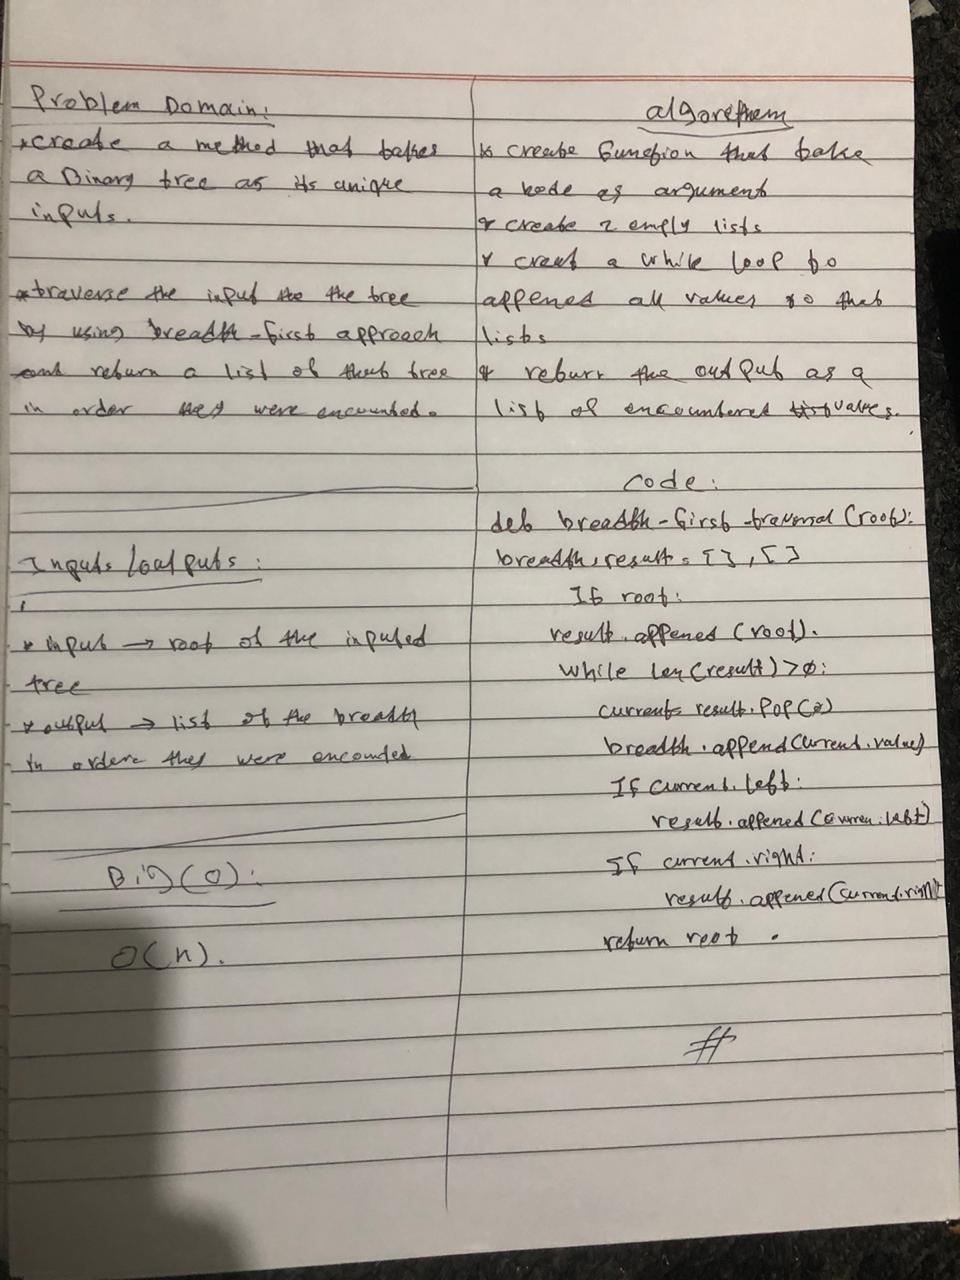 Problem Domain:
*create a method that takes
a Binary tree as its unique
inputs.
*traverse the input the tree
by using breadth-first approach
and return a list of that tree
in order they were encounted.
Inputs/outputs:
* input → root of the inputed
tree
* output → list of the breadth
in ordere they were encounted
Big(O):
O(n).
algorethem
* create function that take
a node as argument
* create 2 empty lists
* creat a while loop to
appened all values to that
lists
* return the output as a
list of encountered values.
code:
def breadth-first-traversal(root):
breadth, result = [], []
If root:
result.appened (root).
while len(result) > 0:
current = result.pop(0)
breadth.append(current.value)
If current.left:
result.appened(curren.left)
If current.right:
result.appened(current.right
return root .
#